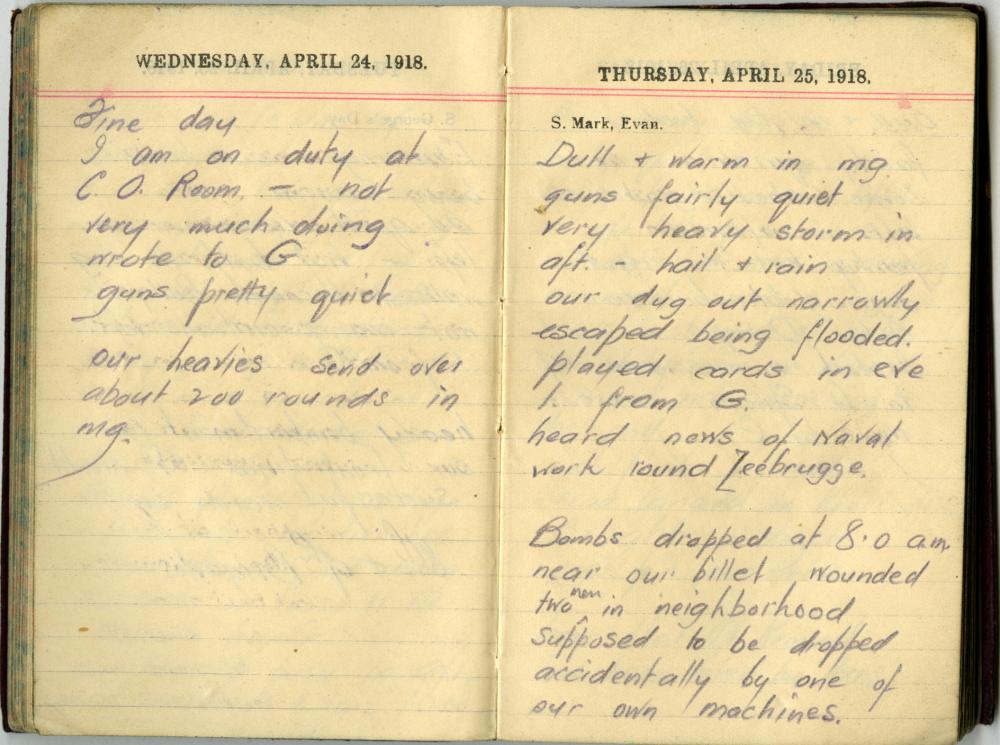 WEDNESDAY, APRIL 24, 1918.
Fine day
I am on duty at
C. O. Room. — not
very much doing
wrote to G
guns pretty quiet
our heavies send over
about 200 rounds in
mg.
THURSDAY, APRIL 25, 1918.
S. Mark, Evan.
Dull + warm in mg.
guns fairly quiet
very heavy storm in
aft. hail + rain
our dug out narrowly
escaped being flooded.
played cards in eve
1. from G.
heard news of Naval
work round Zeebrugge.
Bombs dropped at 8.0 a.m.
near our billet wounded
two men in neighborhood
supposed to be dropped
accidentally by one of
our own machines.